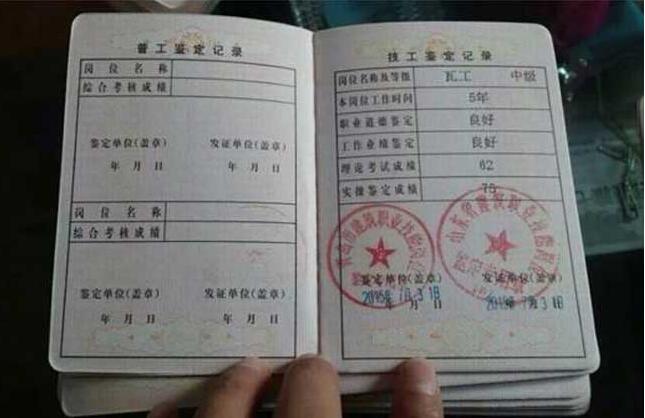 普工鉴定记录
岗位名称
综合考核成绩
鉴定单位(盖章) 发证单位(盖章)
年 月 日 年 月 日
岗位名称
综合考核成绩
鉴定单位(盖章) 发证单位(盖章)
年 月 日 年 月 日
技工鉴定记录
岗位名称及等级 瓦工 中级
本岗位工作时间 5年
职业道德鉴定 良好
工作业绩鉴定 良好
理论考试成绩 62
实操鉴定成绩 75
鉴定单位(盖章) 发证单位(盖章)
年 月 日 年 月 日